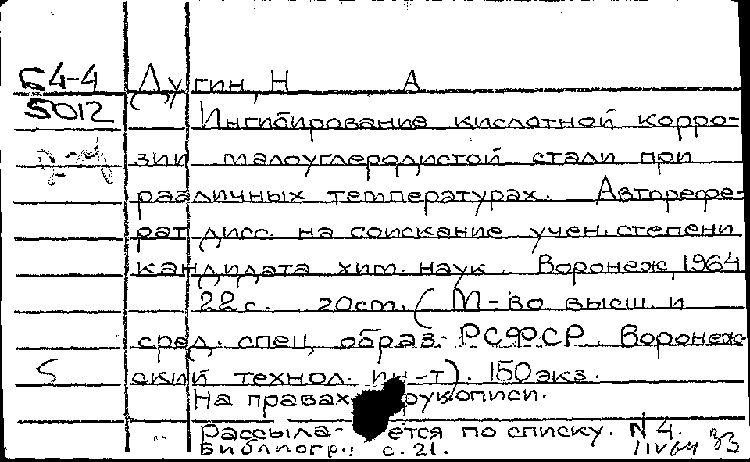 Б4-4 Дугин, Н А
5012 Ингибирование кислотной корро-
зии малоуглеродистой стали при
различных температурах. Авторефе-
рат дисс. на соискание учен. степени
кандидата хим. наук. Воронеж, 1964
22 с. 20 см. (М-во высш. и
сред. спец. образ. РСФСР. Воронеж-
5 ский технол. ин-т). 150 экз.
На правах рукописи.
Рассыла- ется по списку. N 4.
Библиогр.: с. 21.